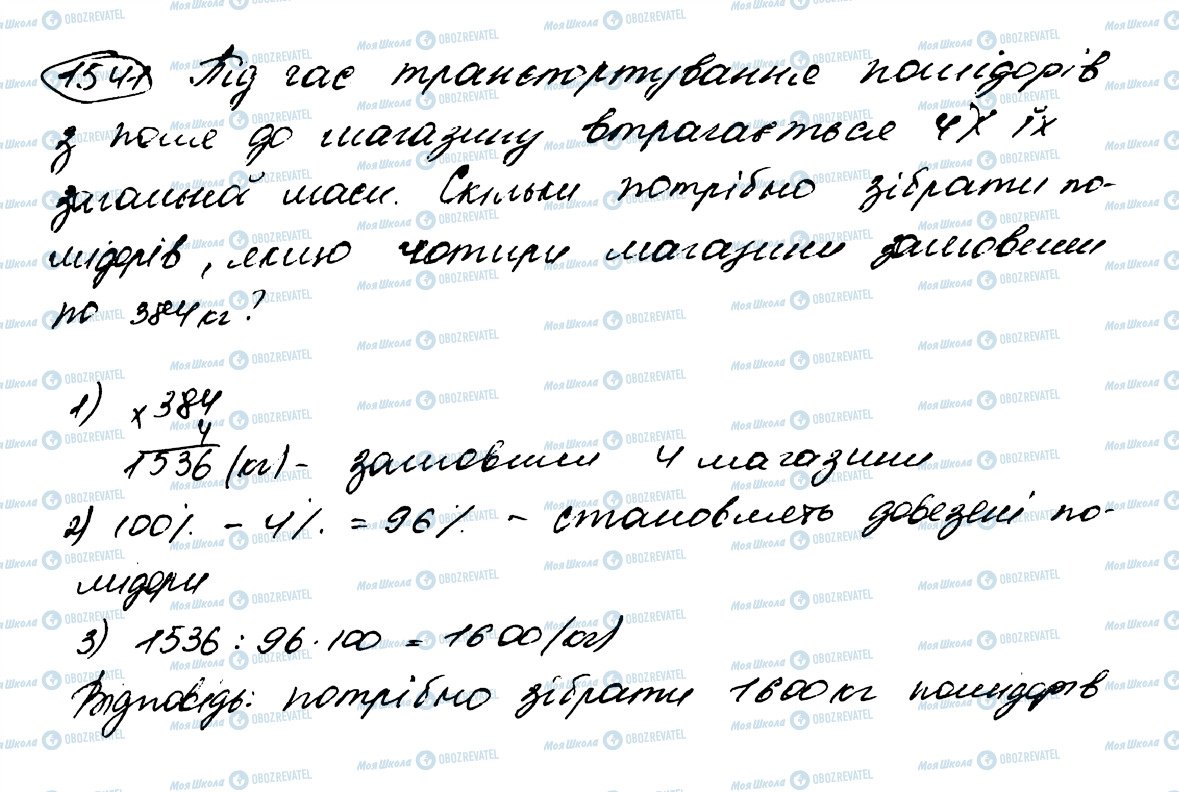 1541 Під час транспортування помідорів
з поля до магазину втрачається 4% їх
загальної маси. Скільки потрібно зібрати по-
мідорів, якщо чотири магазини замовили
по 384 кг?
1) × 384
4
1536 (кг) - замовили 4 магазини
2) 100% - 4% = 96% - становлять довезені по-
мідори
3) 1536 : 96 · 100 = 1600 (кг)
Відповідь: потрібно зібрати 1600 кг помідорів